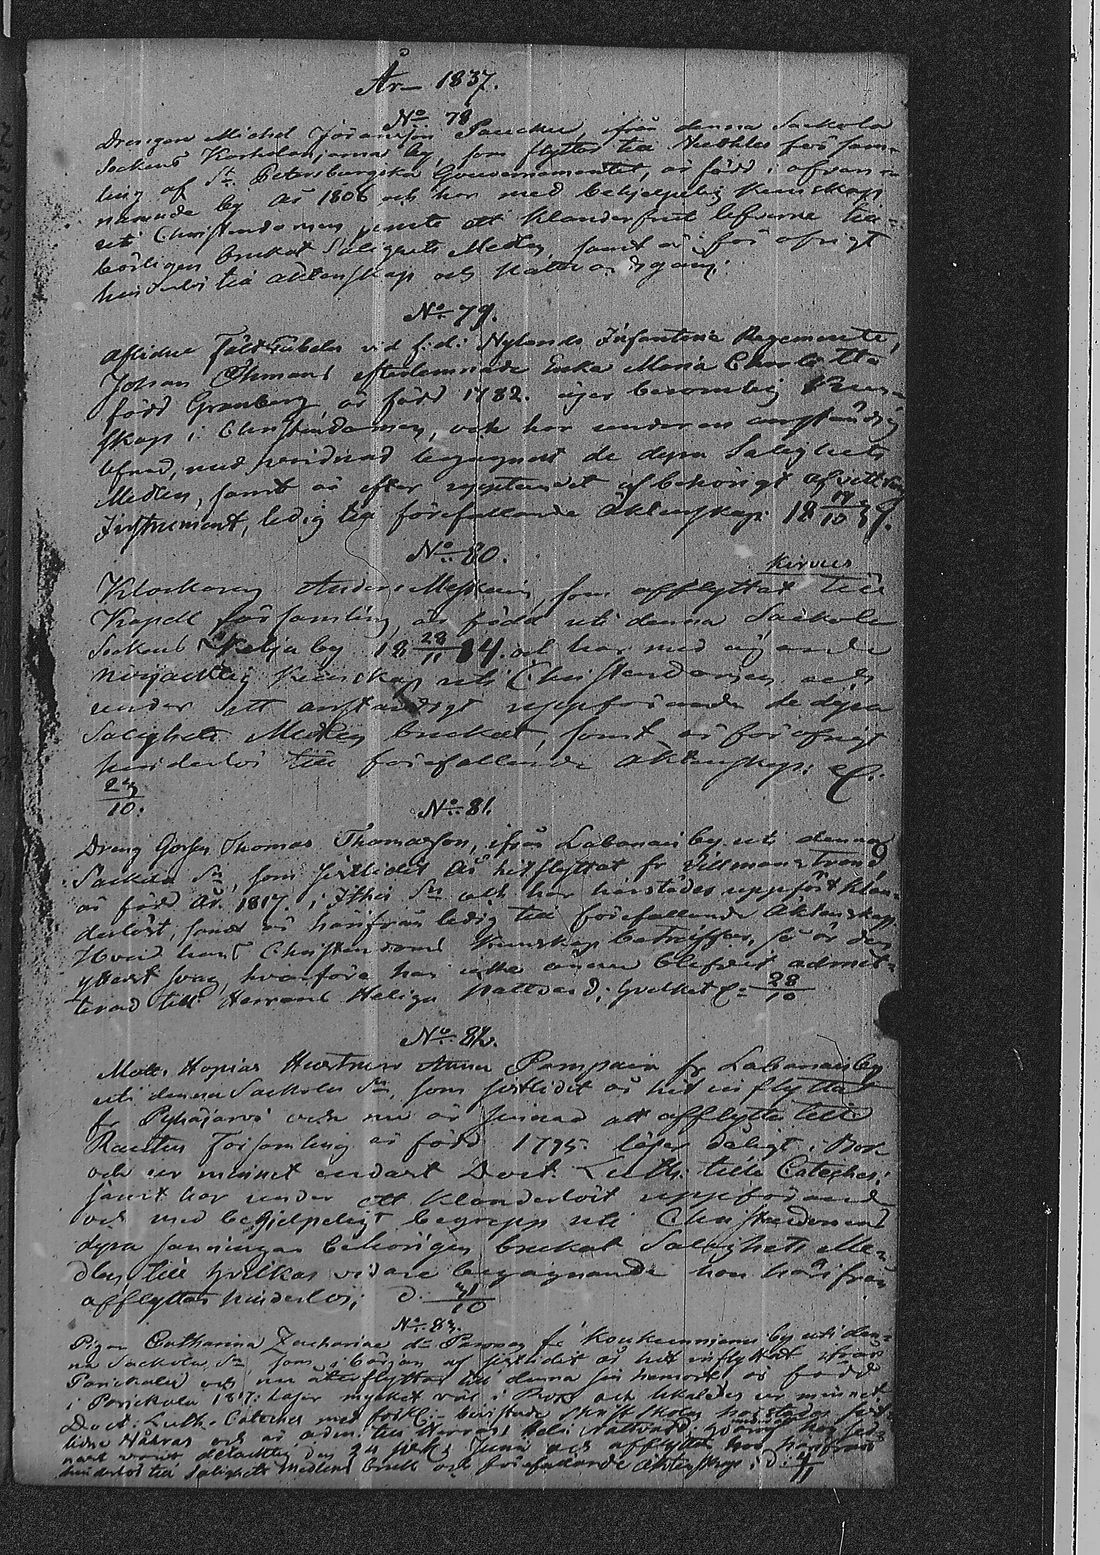 År 1837.
No 78
Drengen Michel Göransson Paucku, ifrån denna Sackola
Sockens by, som flyttar till försam-
ling af St Petersburgska Gouvernementet, är född i ofvan
nämnde by år 1806 och har med behjelpelig kunskap
uti Christendomen, jemte ett klanderfritt lefverne be-
hörigen brukat Salighets Medlen, samt är för öfrigt
hinderlös till äktenskap och nattvardsgång.
No 79.
Aflidne Fält vid f.d. Nylands Infanterie Regemente,
Johan Öhmans efterlemnade Enka Maria Charlotta
född Granberg, är född 1782. äger berömlig Kun-
skap i Christendomen, och har under en anständig
vandel begagnat de dyra Salighets
Medlen, samt är efter af behörigt afvittrings
Instrument, ledig till förefallande äktenskap. 18 17/10 37.
No 80.
Kivinies
Klockaren Anders som afflyttat till
Kapell församling, är född uti denna Sackola
Sockens by 18 28/11 14. och har med ägande
nöjachtig kunskap uti Christendomen och
under ett anständigt uppförande de dyra
Salighets Medlen brukat, samt är för öfrigt
hinderlös till förefallande äktenskap;
27/10.
No 81.
Dreng Gossen Thomas Thomasson, ifrån Labanais by uti denna
Sackola Sn, som sistlidet år hitflyttat fr Willmanstrand
är född År 1817. i Sn och har härstädes uppfört sig klan-
derlöst, samt är härifrån ledig till förefallande Äktenskap
Hvad hans Christendoms kunskap beträffar, så är den
ytterst svag, hvarföre han icke ännu blifvit admit-
terad till Herrans Heliga Nattvard; hvilket 28/10
No 82.
Matts Hopias Hustru Anna Pamppain fr Labanais by
uti denna Sackola Sn, som sistlidet år hit inflyttat
fr Pyhäjärvi och nu är sinnad att afflytta till
Rautus Församling är född 1795. läser dåligt i Bok
och ur minnet endast Doct. Luth. lilla Catechis.
samt har under ett klanderlöst uppförande
och med behjelpeligt begrepp uti Christendomens
dyra sanningar behörigen brukat Salighets Me-
dlen till hvilkas vidare begagnande hon härifrån
afflyttar hinderlös; d. 31/10
No 83.
Pigan Catharina Zachariae dr fr by uti den-
na Sackola Sn som i början af sistlidet år hit inflyttat ifrån
Parickala och nu återflyttar till denna sin hemort är född
i Parickala 1817. läser mycket väl i Bok och likaledes ur minnet
Doct. Luth. Catechis med förkl. bevistade skriftskolan härstädes sist-
till Herrans Hel. Nattvard,
den 24 Juni och afflyttar nu härifrån
hinderlös till Salighets medlens bruk och förefallande Äktenskap; d. 4/11